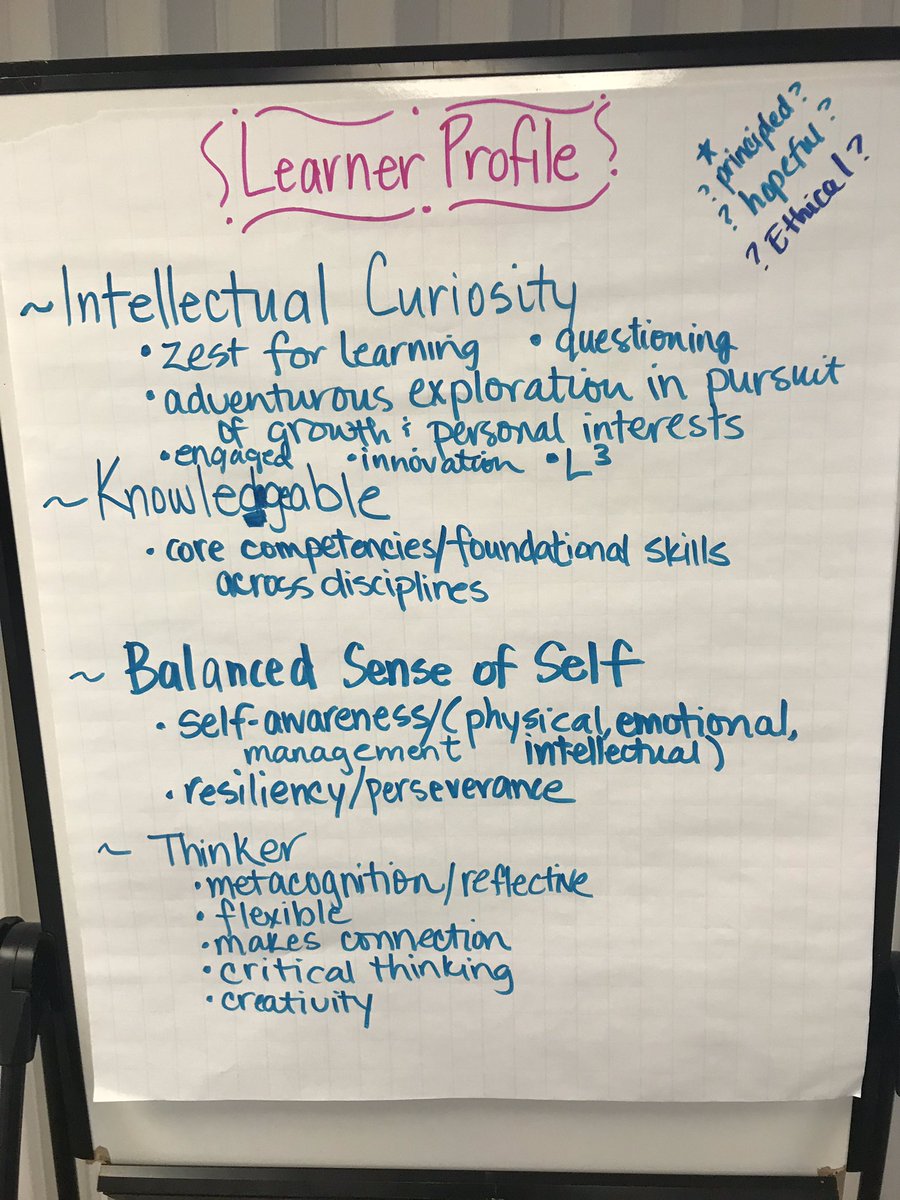 Learner Profile
* principled?
? hopeful?
? Ethical?
~Intellectual Curiosity
• zest for learning • questioning
• adventurous exploration in pursuit
of growth & personal interests
• engaged • innovation • L³
~Knowledgeable
• core competencies/foundational skills
across disciplines
~ Balanced Sense of Self
• self-awareness/(physical, emotional,
management intellectual)
• resiliency/perseverance
~ Thinker
• metacognition/reflective
• flexible
• makes connection
• critical thinking
• creativity